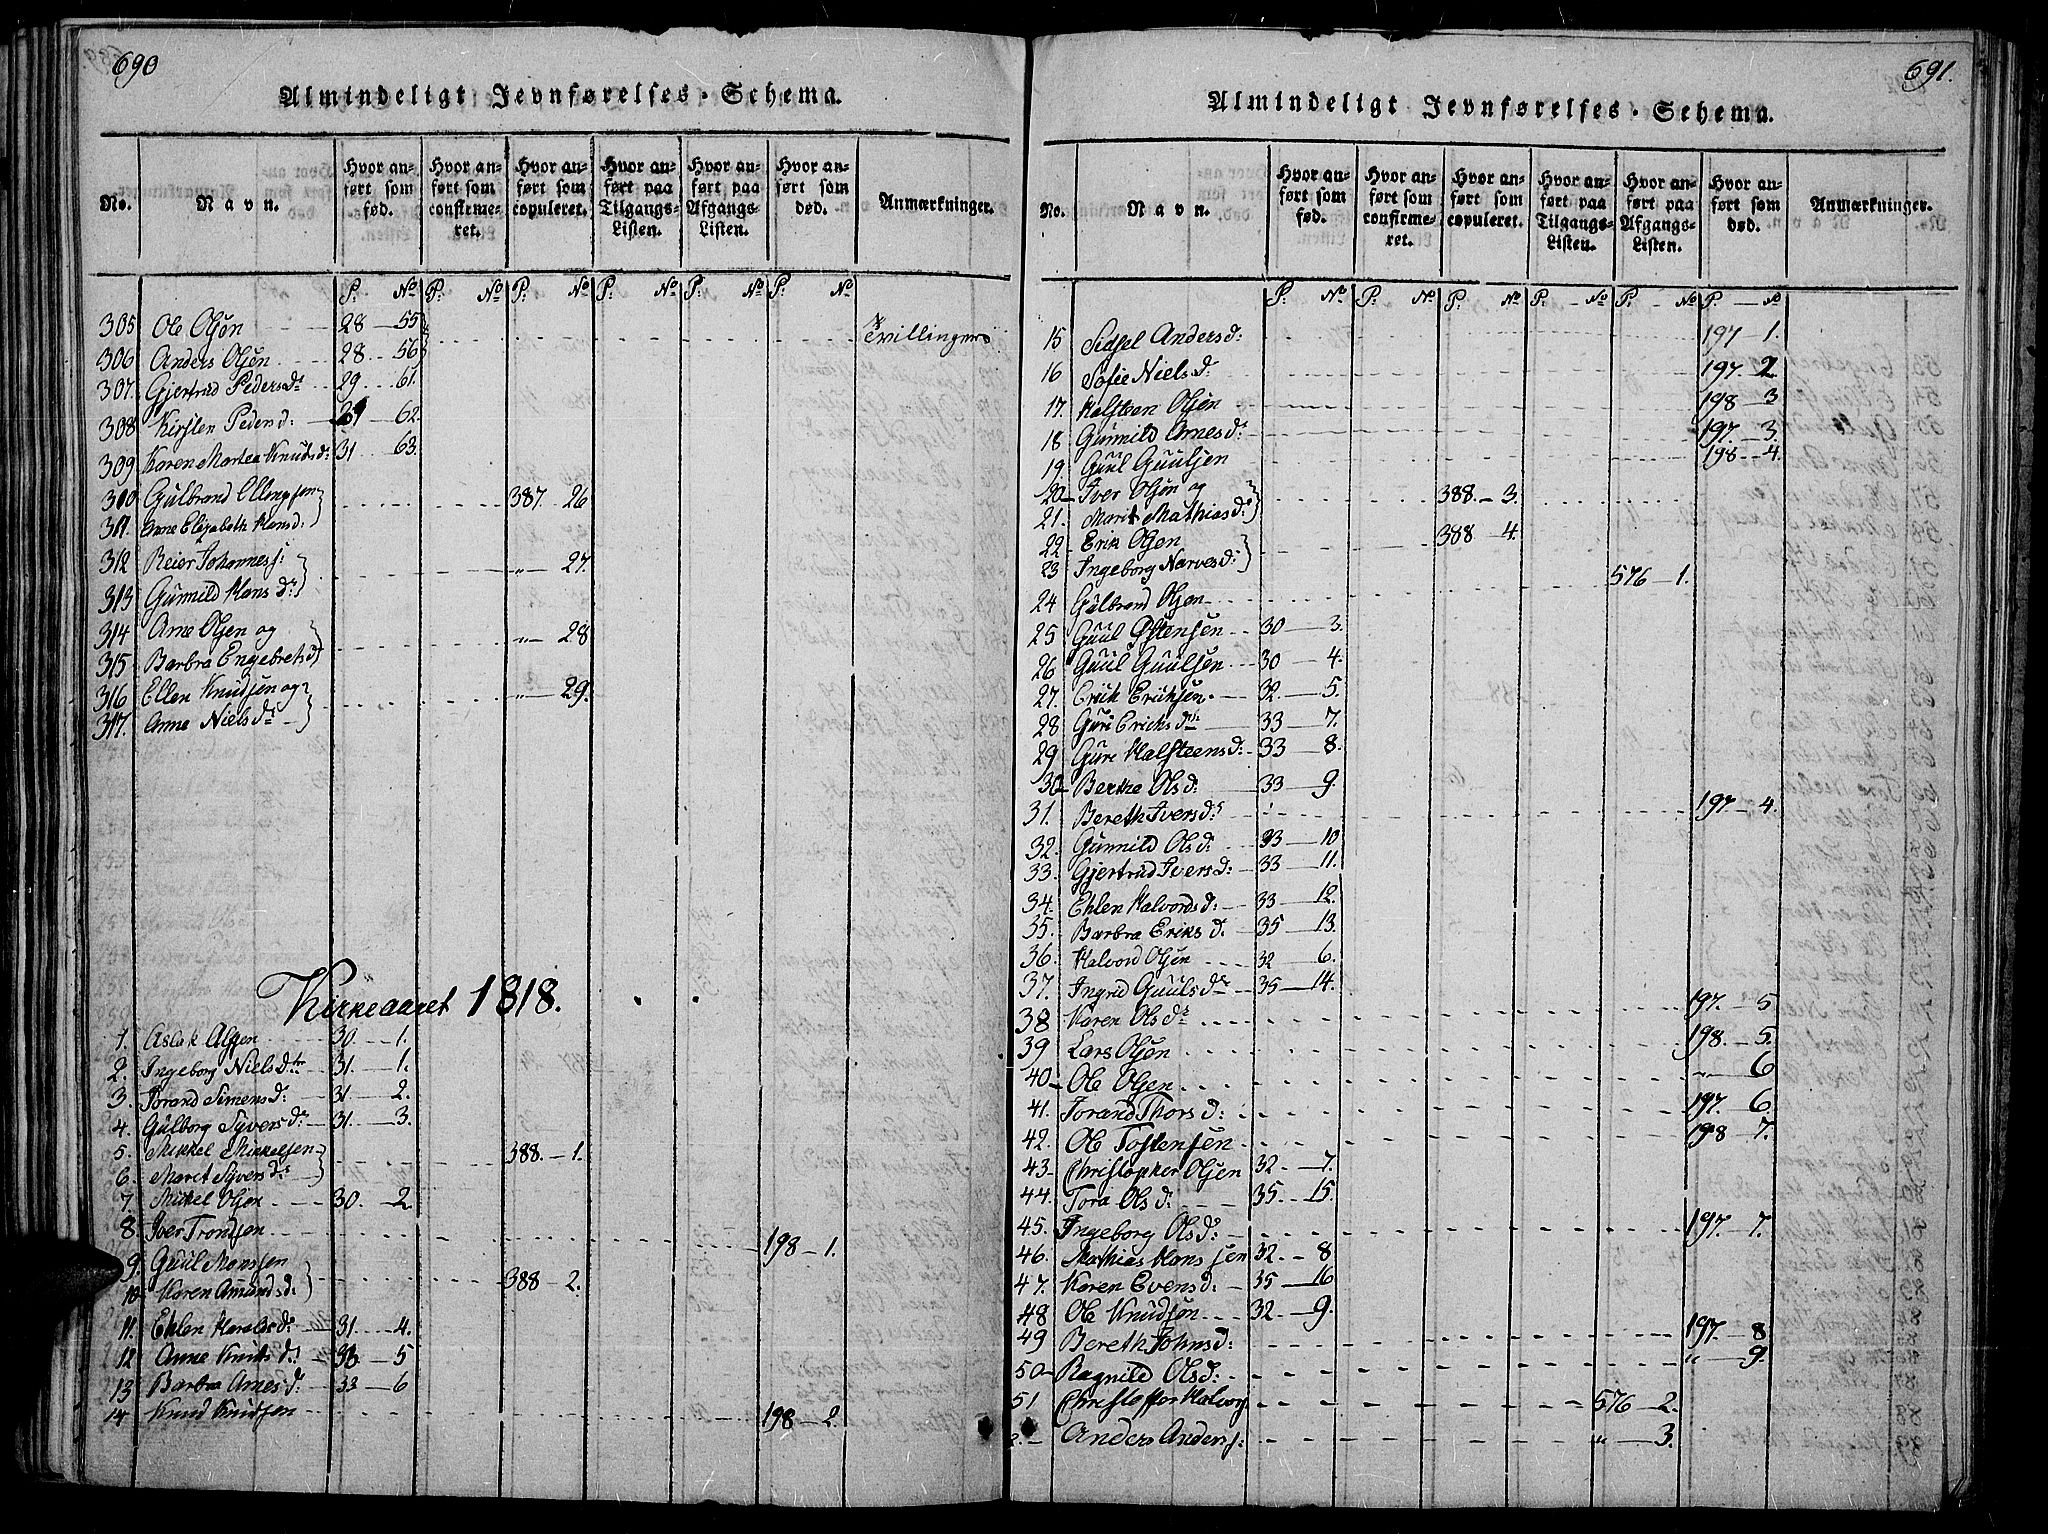 690
Almindeligt Jevnførelses-Schema.
No. Navn. Hvor anført som fød. Hvor anført som confirmeret. Hvor anført som copuleret. Hvor anført paa Tilgangs-Listen. Hvor anført paa Afgangs-Listen. Hvor anført som død. Anmærkninger.
P: No P: No P: No P: No P: No P: No
305 Ole Olsøn 28 — 55 Tvillinger
306 Anders Olsøn 28 — 56
307. Gjertrud Pedersd: 29. — 61.
308 Kirsten Pedersd: 29 — 62.
309 Karen Martea Knudsd: 31 — 63.
310 Gulbrand Ellingsen 387. — 26
311. Anne Elizabeth Hansd:
312 Reier Johanness: " — 27.
313 Gunnild Hansd:
314 Arne Olsen og " — 28
315 Barbra Engebretsd
316 Ellen Knudsen og " — 29.
317. Anne Nielsd:
Kirkeaaret 1818.
1. Aslak Alfsen 30. — 1.
2. Ingeborg Nielsdtr 31. — 1.
3. Jorand Simensd: 31 — 2.
4. Gulborg Syversd: 31. — 3.
5. Mikkel Mikkelsen 388. — 1.
6. Marit Syversd:
7. Mikkel Olsen 30. — 2
8. Iver Trondsen 198 — 1.
9. Guul Monssen 388 — 2.
10. Karen Amundsd:
11. Ehlen Haralsd: 31. — 4.
12 Anne Knutsd: 33. — 5
13 Barbra Arnesd: 33 — 6
14 Knud Knudsen 198 — 2.
691.
Almindeligt Jevnførelses-Schema.
No. Navn. Hvor anført som fød. Hvor anført som confirmeret. Hvor anført som copuleret. Hvor anført paa Tilgangs-Listen. Hvor anført paa Afgangs-Listen. Hvor anført som død. Anmærkninger.
P: No P: No P: No P: No P: No P: No
15 Sidsel Andersd: 197 — 1.
16 Sofie Nielsd: 197. — 2
17. Halsteen Olsen 198 — 3
18 Gunnild Arnesd: 197. — 3.
19 Guul Guulsen 198 — 4.
20 Iver Olsøn og 388. — 3.
21. Marit Mathiasd:
22 Erik Olsen 388 — 4.
23 Ingeborg Narvesd:
24 Gulbrand Olsen 576 — 1.
25 Guul Østensen 30 — 3.
26 Guul Guulsen 30 — 4.
27. Erick Ericksen 32. — 5.
28 Guri Ericksdtr 33 — 7.
29 Guri Halsteensd: 33 — 8.
30 Berthe Olsd: 33 — 9.
31. Bereth Iversd: 197 — 4.
32. Gunnild Olsd: 33 — 10
33. Gjertrud Iversd: 33 — 11.
34. Ehlen Halvordsd: 33 — 12.
35. Barbra Eriksd: 35 — 13.
36. Halvord Olsen 32 — 6.
37. Ingrid Guulsd: 35 — 14.
38 Karen Olsd: 197. — 5
39 Lars Olsøn 198. — 5.
40 Ole Olsen " — 6
41. Jorand Thorsd: 197. — 6.
42. Ole Tostensen 198 — 7.
43. Christopher Olsen 32. — 7.
44. Tora Olsd: 35. — 15.
45. Ingeborg Olsd: 197. — 7.
46. Mathias Hanssen 32. — 8
47. Karen Evensd: 35 — 16
48 Ole Knudsøn 32. — 9.
49 Bereth Johnsd: 197. — 8
50 Ragnild Olsd: " — 9.
51 Christoffer Halvors 576 — 2.
2. Anders Anders: " — 3.